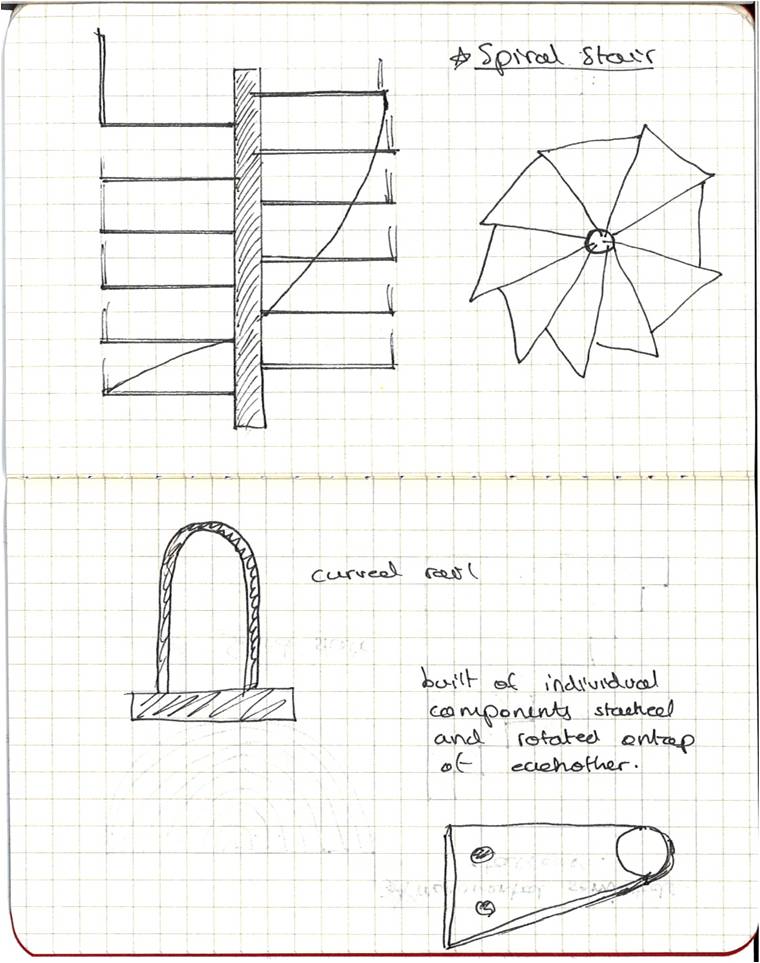 ☆ Spiral Stair
curved rail
built of individual
components stacked
and rotated ontop
of eachother.